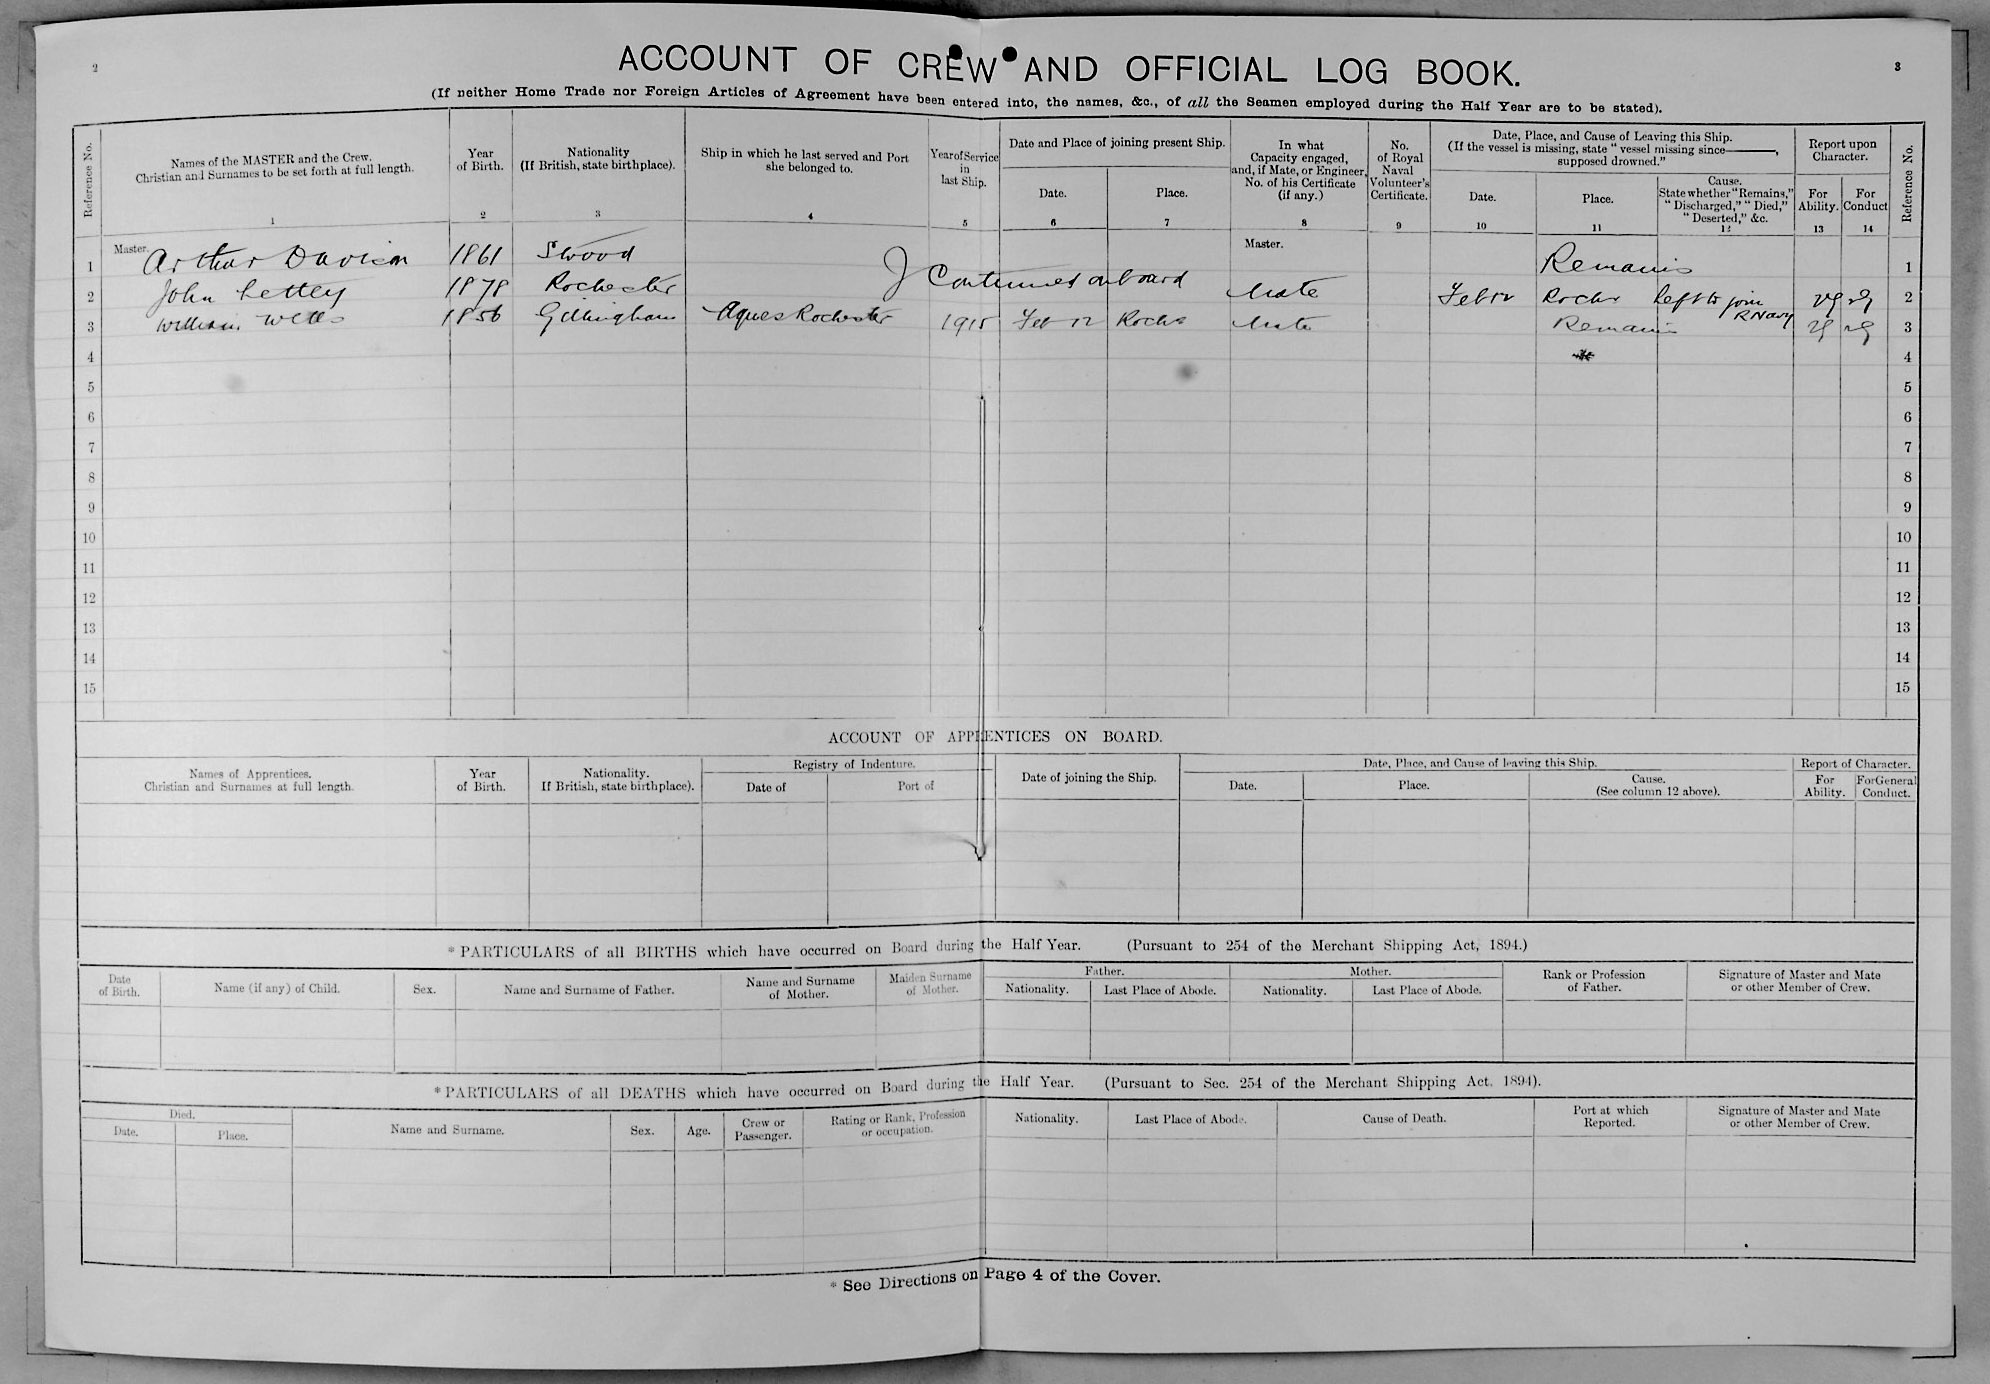 2
3
ACCOUNT OF CREW AND OFFICIAL LOG BOOK.
(If neither Home Trade nor Foreign Articles of Agreement have been entered into, the names, &c., of all the Seamen employed during the Half Year are to be stated).
Reference No.
Names of the MASTER and the Crew.
Christian and Surnames to be set forth at full length.
1
Year
of Birth.
2
Nationality
(If British, state birthplace).
3
Ship in which he last served and Port
she belonged to.
4
Year of Service
in
last Ship.
5
Date and Place of joining present Ship.
Date.
6
Place.
7
In what
Capacity engaged,
and, if Mate, or Engineer,
No. of his Certificate
(if any.)
8
No.
of Royal
Naval
Volunteer's
Certificate.
9
Date, Place, and Cause of Leaving this Ship.
(If the vessel is missing, state "vessel missing since———,
supposed drowned."
Date.
10
Place.
11
Cause.
State whether "Remains,"
"Discharged," "Died,"
"Deserted," &c.
12
Report upon
Character.
For
Ability.
13
For
Conduct
14
Reference No.
1 Master. Arthur Davison 1861 Strood Continued on board Master. Remains 1
2 John 1878 Rochester Mate Feb 12 Rochr Left to join R Navy vg vg 2
3 William Wells 1856 Gillingham Agnes Rochester 1915 Feb 12 Rochr Mate Remains vg vg 3
4 4
5 5
6 6
7 7
8 8
9 9
10 10
11 11
12 12
13 13
14 14
15 15
ACCOUNT OF APPRENTICES ON BOARD.
Names of Apprentices.
Christian and Surnames at full length.
Year
of Birth.
Nationality.
If British, state birthplace).
Registry of Indenture.
Date of
Port of
Date of joining the Ship.
Date, Place, and Cause of leaving this Ship.
Date.
Place.
Cause.
(See column 12 above).
Report of Character.
For
Ability.
For General
Conduct.
* PARTICULARS of all BIRTHS which have occurred on Board during the Half Year. (Pursuant to 254 of the Merchant Shipping Act, 1894.)
Date
of Birth.
Name (if any) of Child.
Sex.
Name and Surname of Father.
Name and Surname
of Mother.
Maiden Surname
of Mother.
Father.
Nationality.
Last Place of Abode.
Mother.
Nationality.
Last Place of Abode.
Rank or Profession
of Father.
Signature of Master and Mate
or other Member of Crew.
* PARTICULARS of all DEATHS which have occurred on Board during the Half Year. (Pursuant to Sec. 254 of the Merchant Shipping Act. 1894).
Died.
Date.
Place.
Name and Surname.
Sex.
Age.
Crew or
Passenger.
Rating or Rank, Profession
or occupation.
Nationality.
Last Place of Abode.
Cause of Death.
Port at which
Reported.
Signature of Master and Mate
or other Member of Crew.
* See Directions on Page 4 of the Cover.